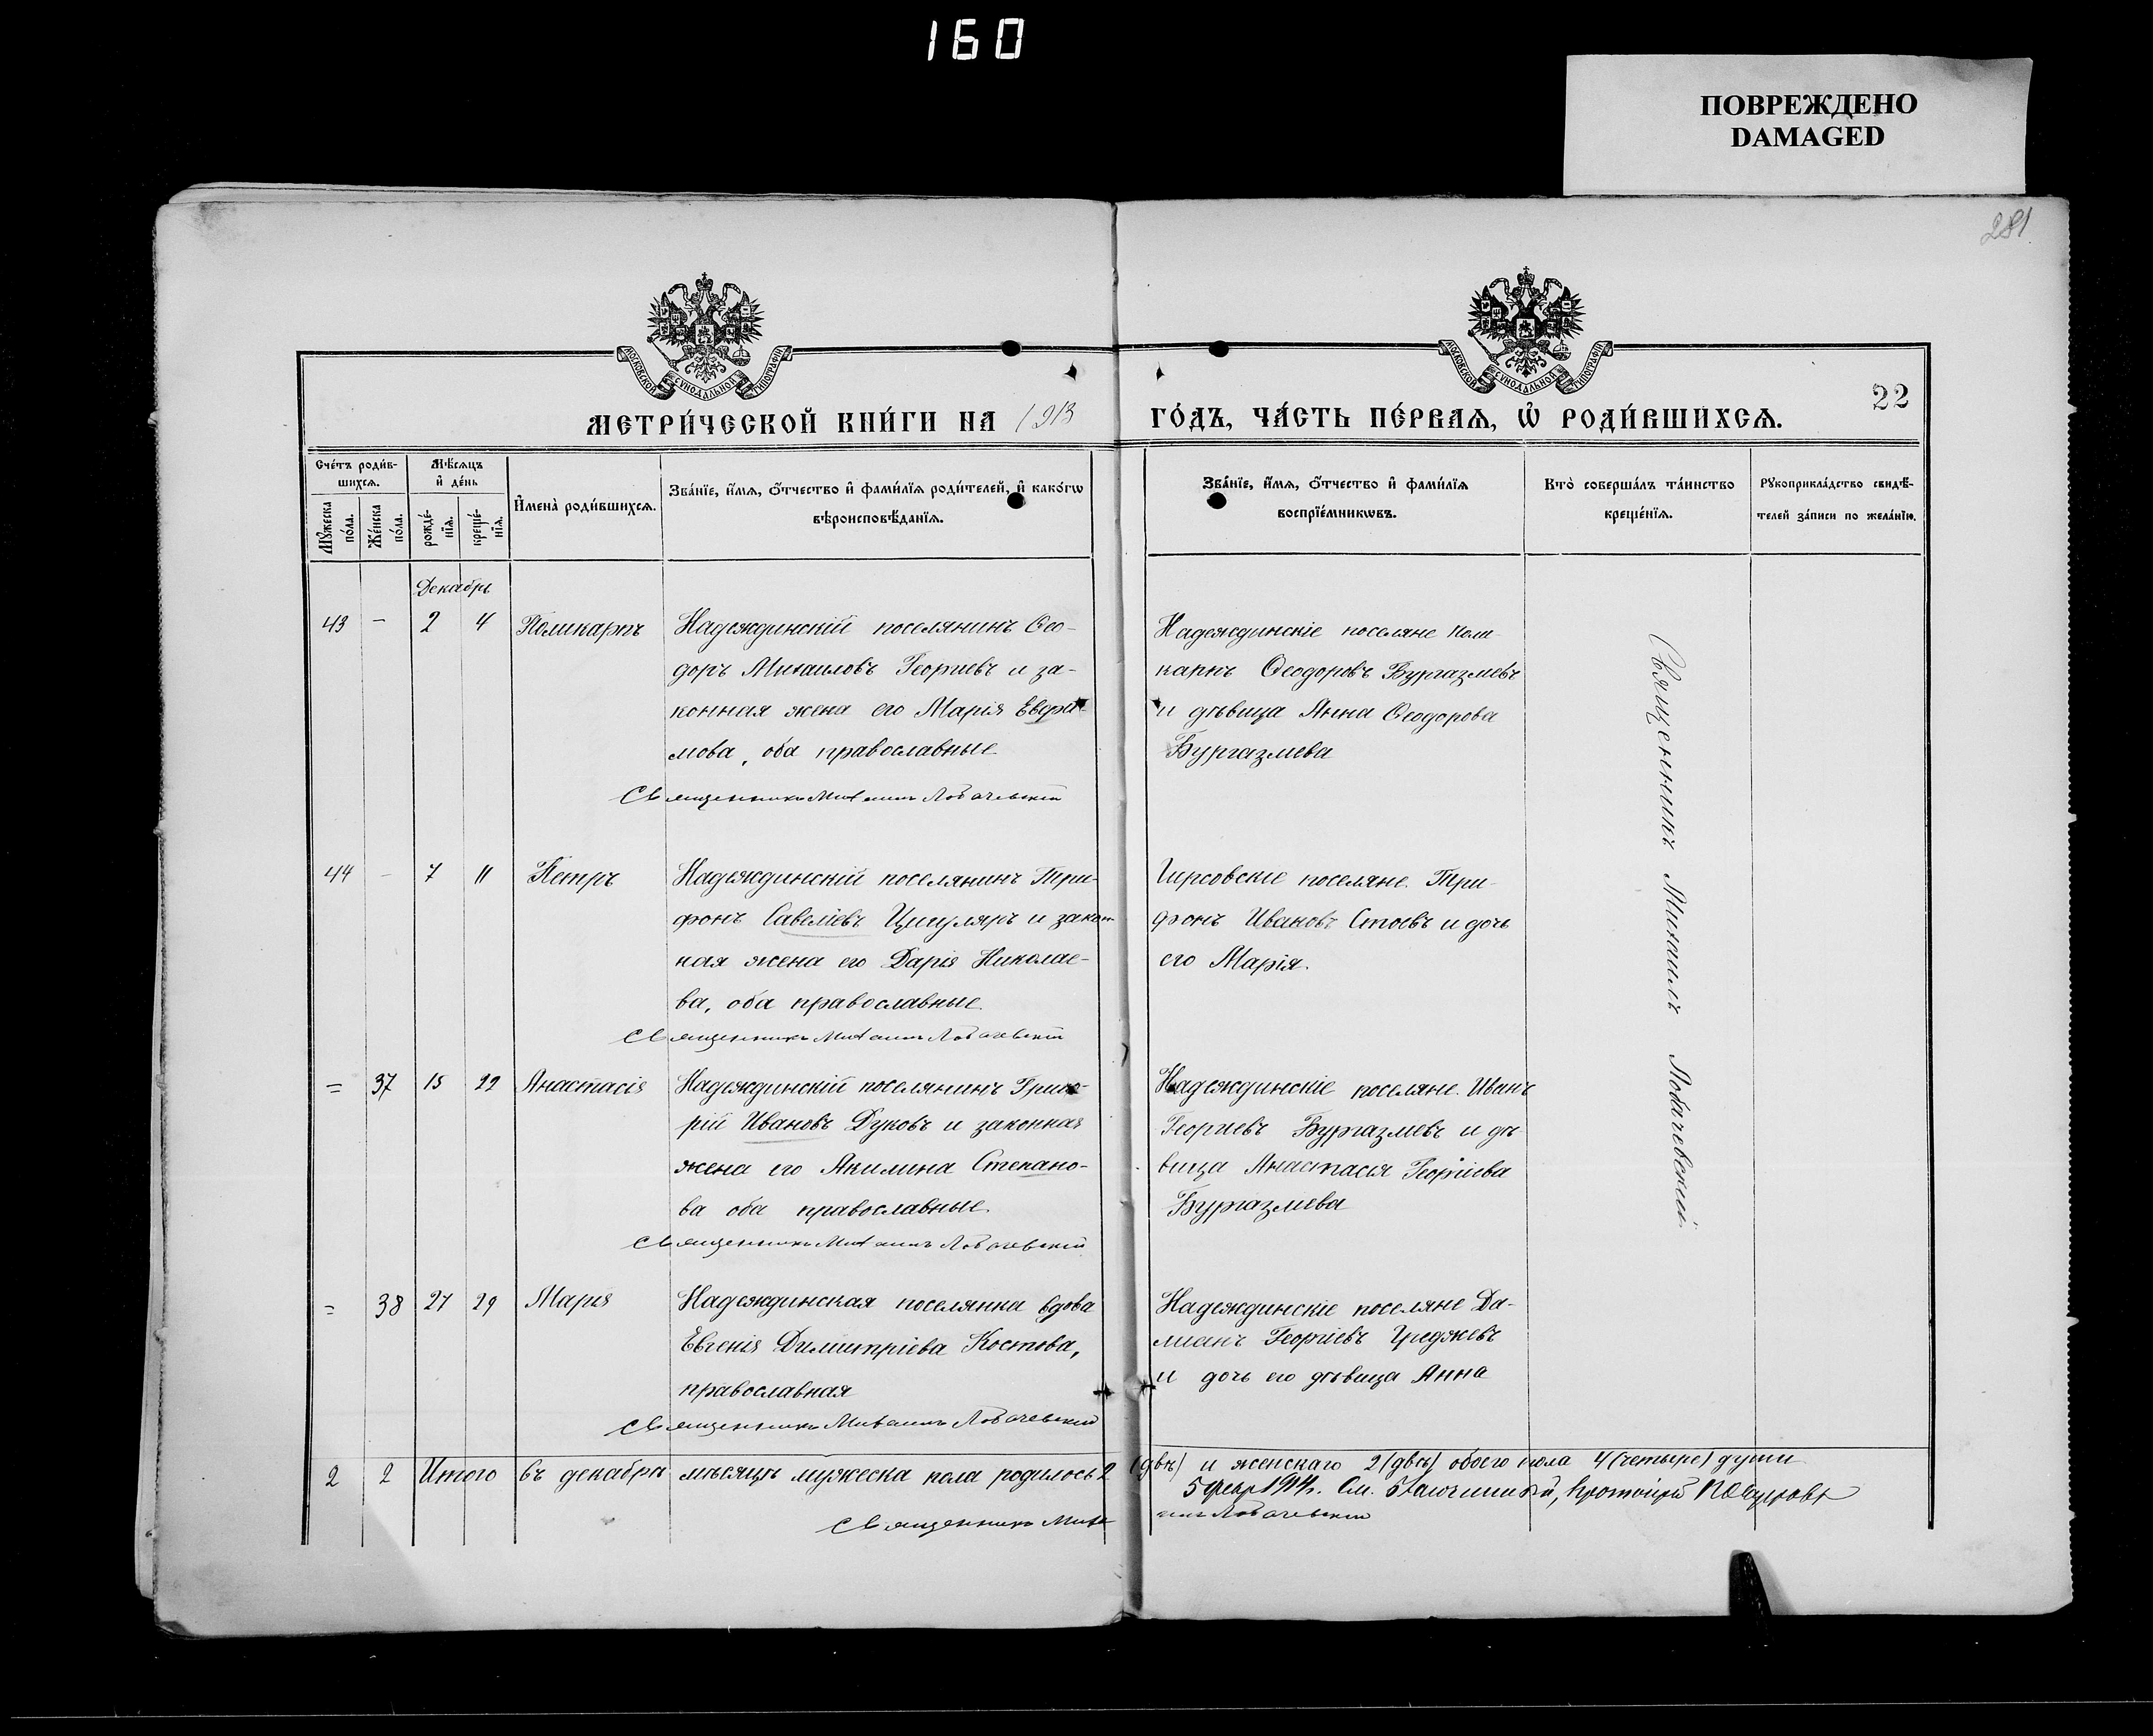 160
ПОВРЕЖДЕНО
DAMAGED
281
МОСКОВСКОЙ СѴНОДАЛЬНОЙ ТИПОГРАФІИ
МОСКОВСКОЙ СѴНОДАЛЬНОЙ ТИПОГРАФІИ
22
МЕТРИ́ЧЕСКОЙ КНИ́ГИ НА 1913 ГО́ДЪ, ЧА́СТЬ ПЕ́РВАѦ, Ѡ҆ РОДИ́ВШИХСѦ.
Сче́тъ роди́в-
шихсѧ.
Мꙋ́жеска
по́ла.
Же́нска
по́ла.
Мѣ́сѧцъ
и҆ де́нь
рожде́-
нїѧ.
креще́-
нїѧ.
И҆мена̀ роди́вшихсѧ.
Зва́нїе, и҆́мѧ, ѻ҆́тчество и҆ фами́лїѧ роди́телей, и҆ како́гѡ
вѣроисповѣ́данїѧ.
Зва́нїе, и҆́мѧ, ѻ҆́тчество и҆ фами́лїѧ
воспрїе́мникѡвъ.
Кто̀ соверша́лъ та́инство
креще́нїѧ.
Рꙋкоприкла́дство свидѣ́-
телей за́писи по жела́нїю.
Декабрь
43 - 2 4 Поликарпъ
Надеждинскій поселянинъ Ѳео-
доръ Михаиловъ Георгіевъ и за-
конная жена его Марія
мова, оба православные
Священникъ Михаилъ Лобачевскій
Надеждинскіе поселяне Поли-
карпъ Ѳеодоровъ Бургазліевъ
и дѣвица Анна Ѳеодорова
Бургазліева
44 - 7 11 Петръ
Надеждинскій поселянинъ Три-
фонъ Савеліевъ Цигуляръ и закон-
ная жена его Дарія Николае-
ва, оба православные
Священникъ Михаилъ Лобачевскій
Гирсовскіе поселяне Три-
фонъ Ивановъ Стоевъ и дочь
его Марія.
= 37 15 22 Анастасія
Надеждинскій поселянинъ Григо-
рій Ивановъ Дуковъ и законная
жена его Акилина Степано-
ва оба православные.
Священникъ Михаилъ Лобачевскій
Надеждинскіе поселяне Иванъ
Георгіевъ Бургазліевъ и дѣ-
вица Анастасія Георгіева
Бургазліева
= 38 27 29 Марія
Надеждинская поселянка вдова
Евгенія Димитріева Костова,
православная
Священникъ Михаилъ Лобачевскій
Надеждинскіе поселяне Да-
міанъ Георгіевъ
и дочь его дѣвица Анна
Священникъ Михаилъ Лобачевскій
2 2 Итого въ декабрѣ мѣсяцѣ мужеска пола родилось 2 (двѣ) и женскаго 2 (двѣ) обоего пола 4 (четыре) души
5 февр 1914 г. См. Благочинный, протоіерей
Священникъ Михаилъ Лобачевскій